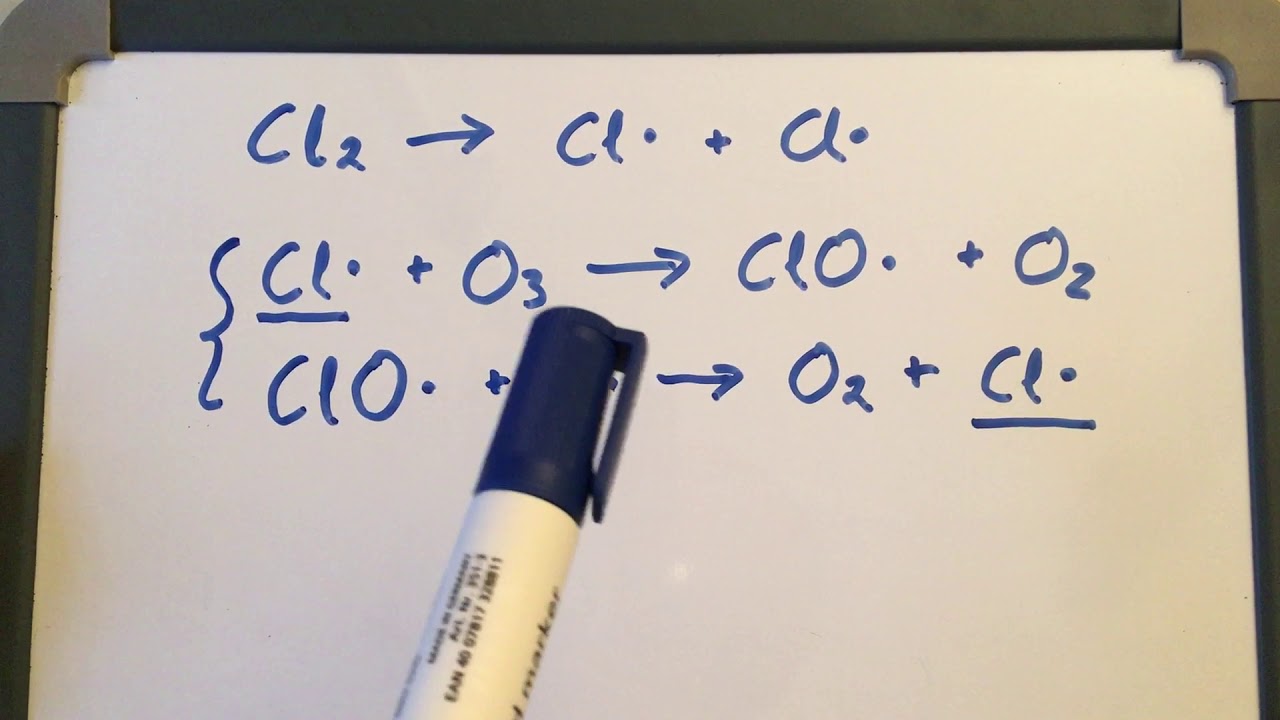 Cl₂ → Cl· + Cl·
Cl· + O₃ → ClO· + O₂
ClO· + · → O₂ + Cl·
MADE IN GERMANY
Art. Nr. 351-3
EAN 40 07817 328811
marker